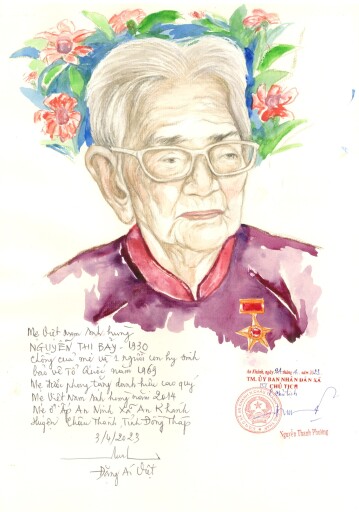 Mẹ Việt Nam Anh hùng
NGUYỄN THỊ BẢY - 1930
Chồng của mẹ và 2 người con hy sinh
bảo vệ Tổ Quốc năm 1969
Mẹ được phong tặng danh hiệu cao quý
Mẹ Việt Nam Anh hùng năm 2014
Mẹ ở ấp An Ninh Xã An Khánh
Huyện Châu Thành Tỉnh Đồng Tháp
3/4/2023
Đặng Ái Việt
An Khánh, ngày
TM. ỦY BAN NHÂN DÂN XÃ
CHỦ TỊCH
Nguyễn Thanh Phương